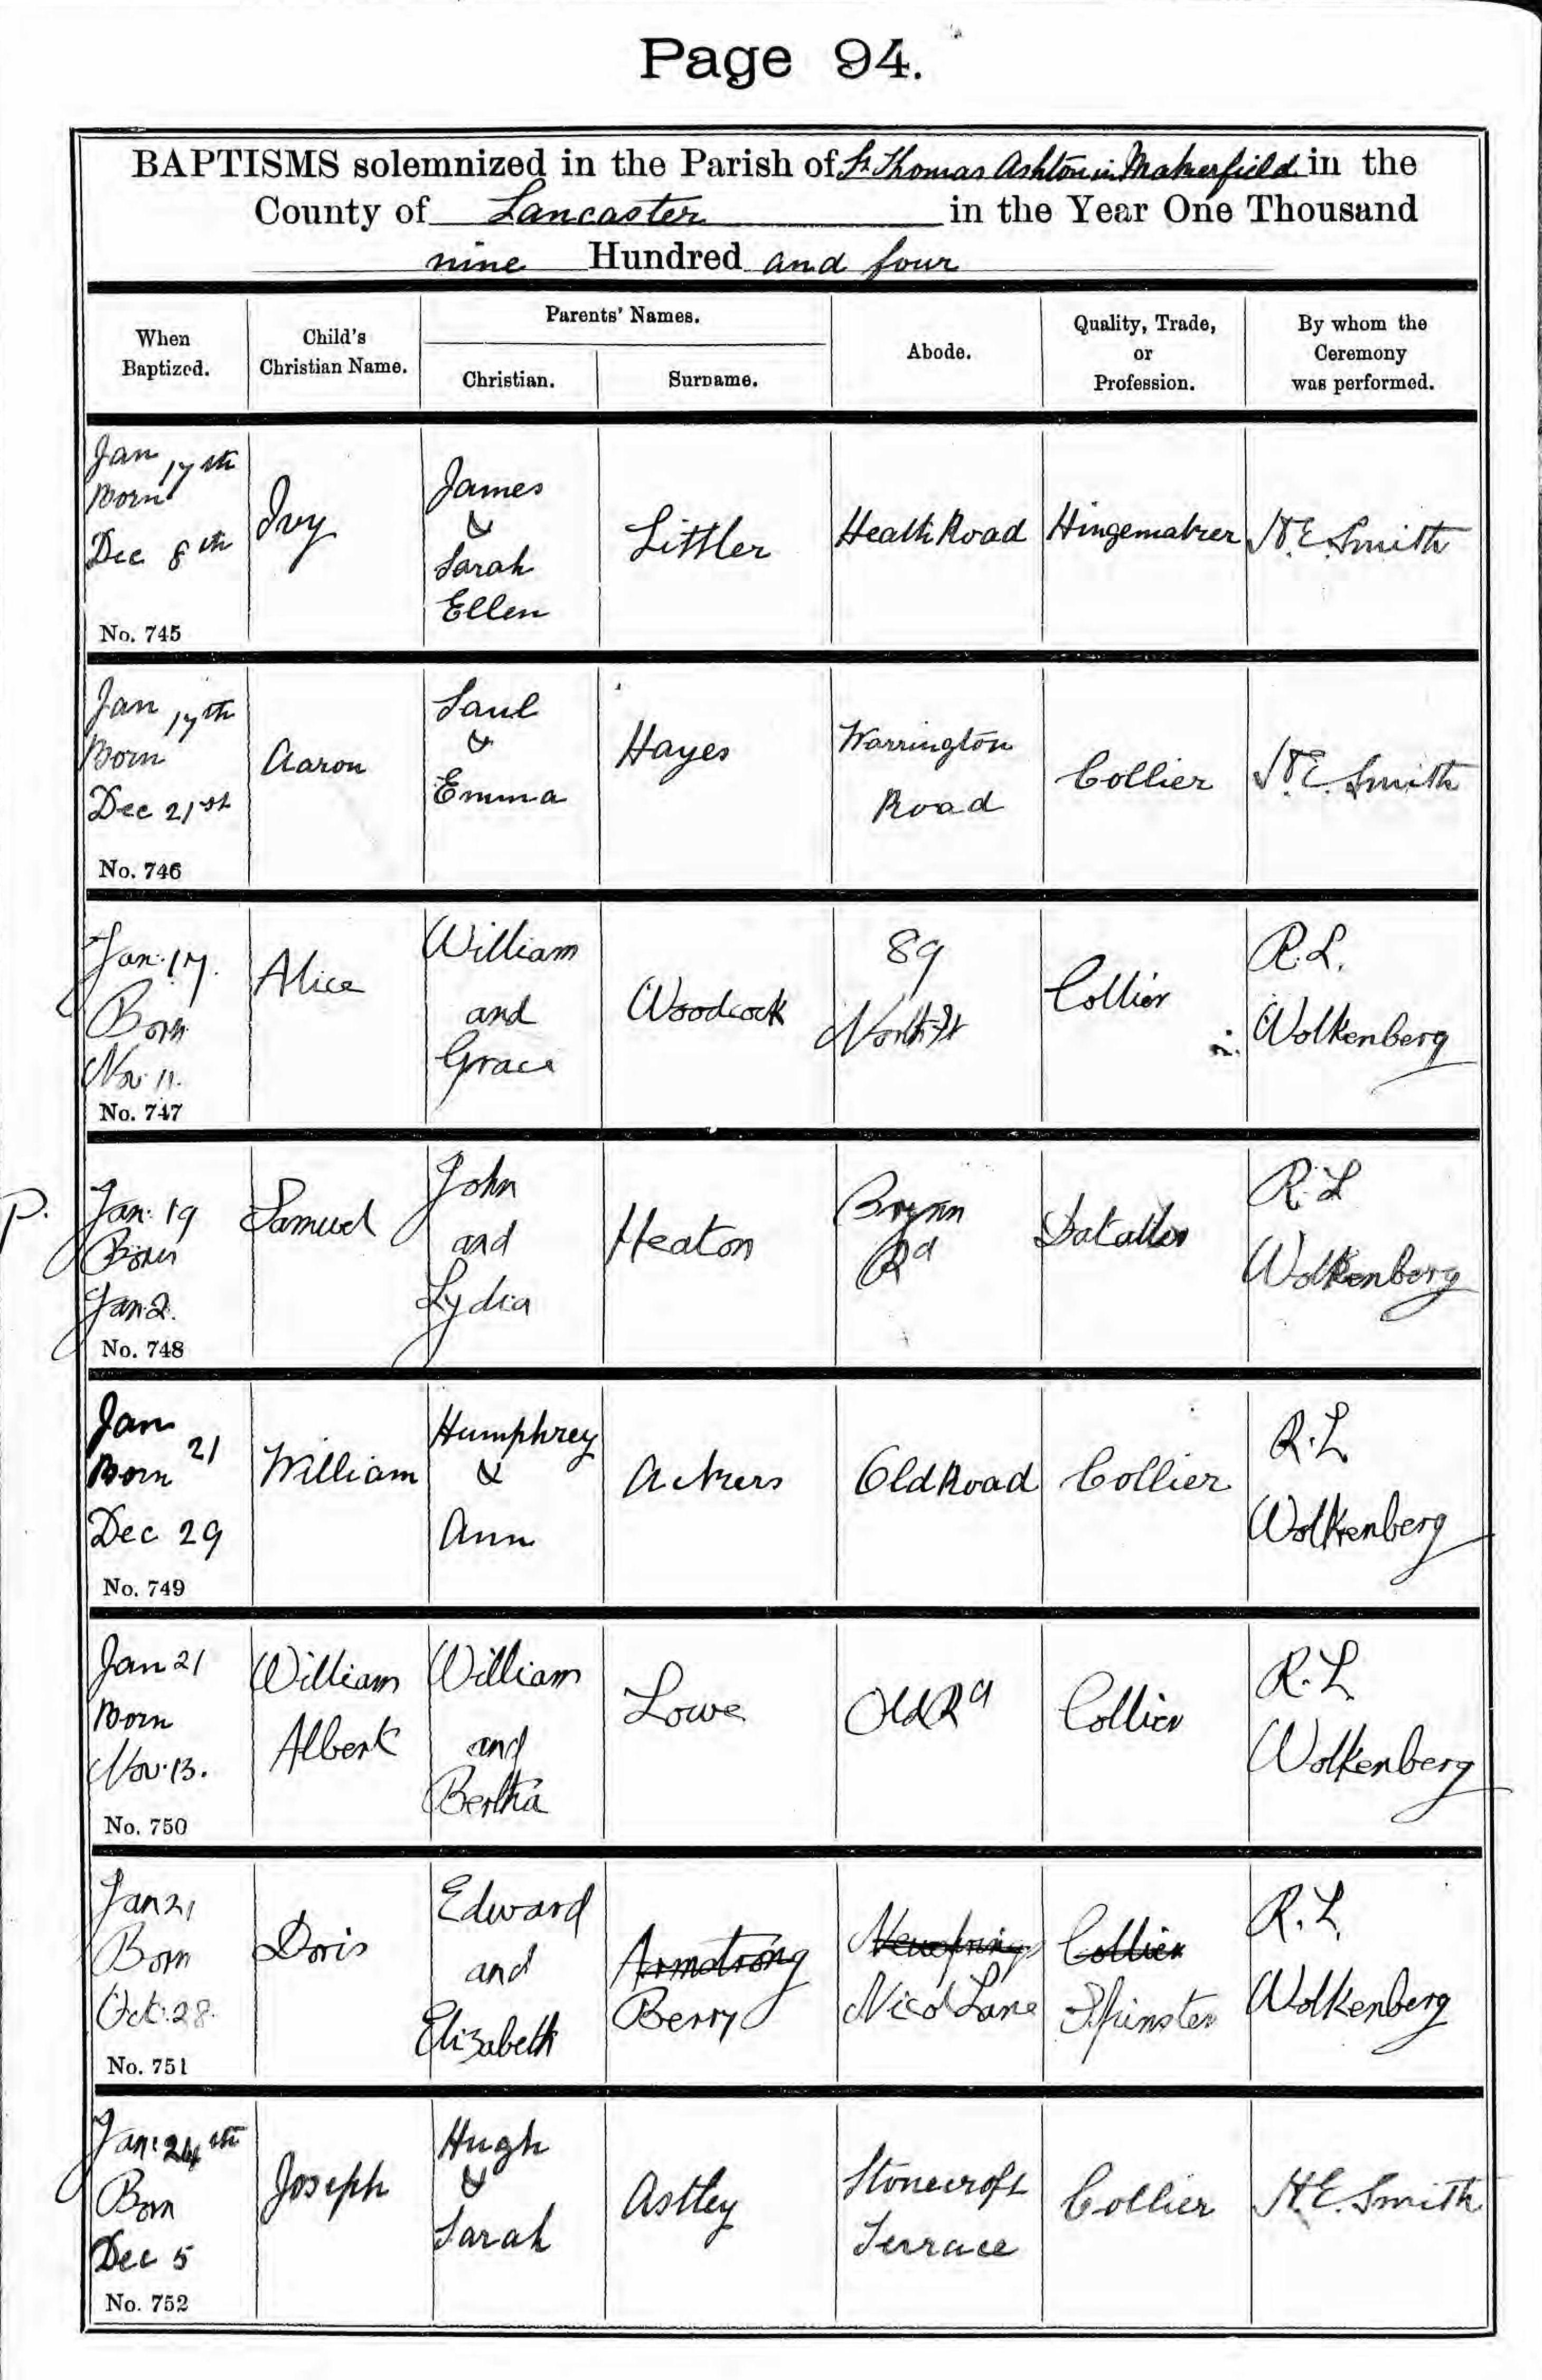 Page 94.
BAPTISMS solemnized in the Parish of St Thomas Ashton in Makerfield in the
County of Lancaster in the Year One Thousand
nine Hundred and four
When Baptized.
Child's Christian Name.
Parents' Names.
Christian.
Surname.
Abode.
Quality, Trade, or Profession.
By whom the Ceremony was performed.
Jan 17th
Born
Dec 8th
No. 745
Ivy
James
&
Sarah
Ellen
Littler
Heath Road
Hingemaker
H.E. Smith
Jan 17th
Born
Dec 21st
No. 746
Aaron
Saul
&
Emma
Hayes
Warrington
Road
Collier
H.E. Smith
Jan. 17.
Born
Nov. 11.
No. 747
Alice
William
and
Grace
Woodcock
89
North St
Collier
R.L.
Wolkenberg
P.
Jan. 19
Born
Jan 2.
No. 748
Samuel
John
and
Lydia
Heaton
Brynn
Rd
Dataller
R.L
Wolkenberg
Jan 21
Born
Dec 29
No. 749
William
Humphrey
&
Ann
Ackers
Old Road
Collier
R.L
Wolkenberg
Jan 21
Born
Nov. 13.
No. 750
William
Albert
William
and
Bertha
Lowe
Old Rd
Collier
R.L.
Wolkenberg
Jan 21
Born
Oct. 28.
No. 751
Doris
Edward
and
Elizabeth
Armstrong
Berry
Nicol Lane
Collier
R.L.
Wolkenberg
Jan: 24th
Born
Dec 5
No. 752
Joseph
Hugh
&
Sarah
Astley
Stonecroft
Terrace
Collier
H.E. Smith